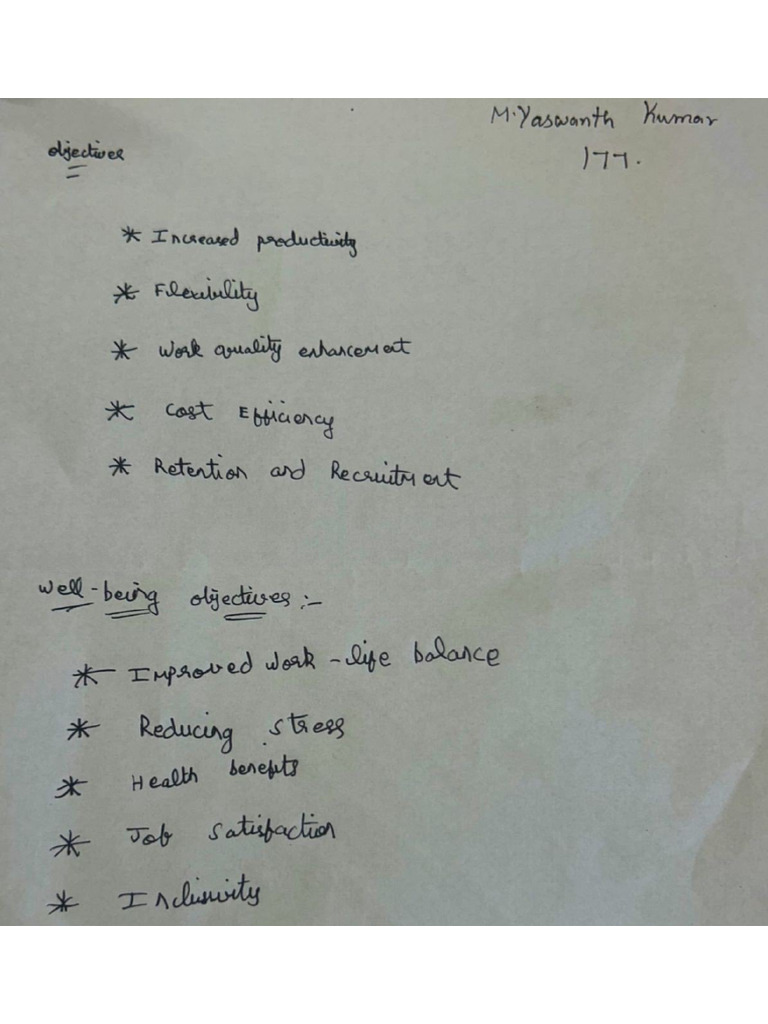 M.Yaswanth Kumar
177.
objectives
* Increased productivity
* Flexibility
* Work quality enhancement
* Cost Efficiency
* Retention and Recruitment
Well-being objectives :-
* Improved work-life balance
* Reducing stress
* Health benefits
* Job satisfaction
* Inclusivity